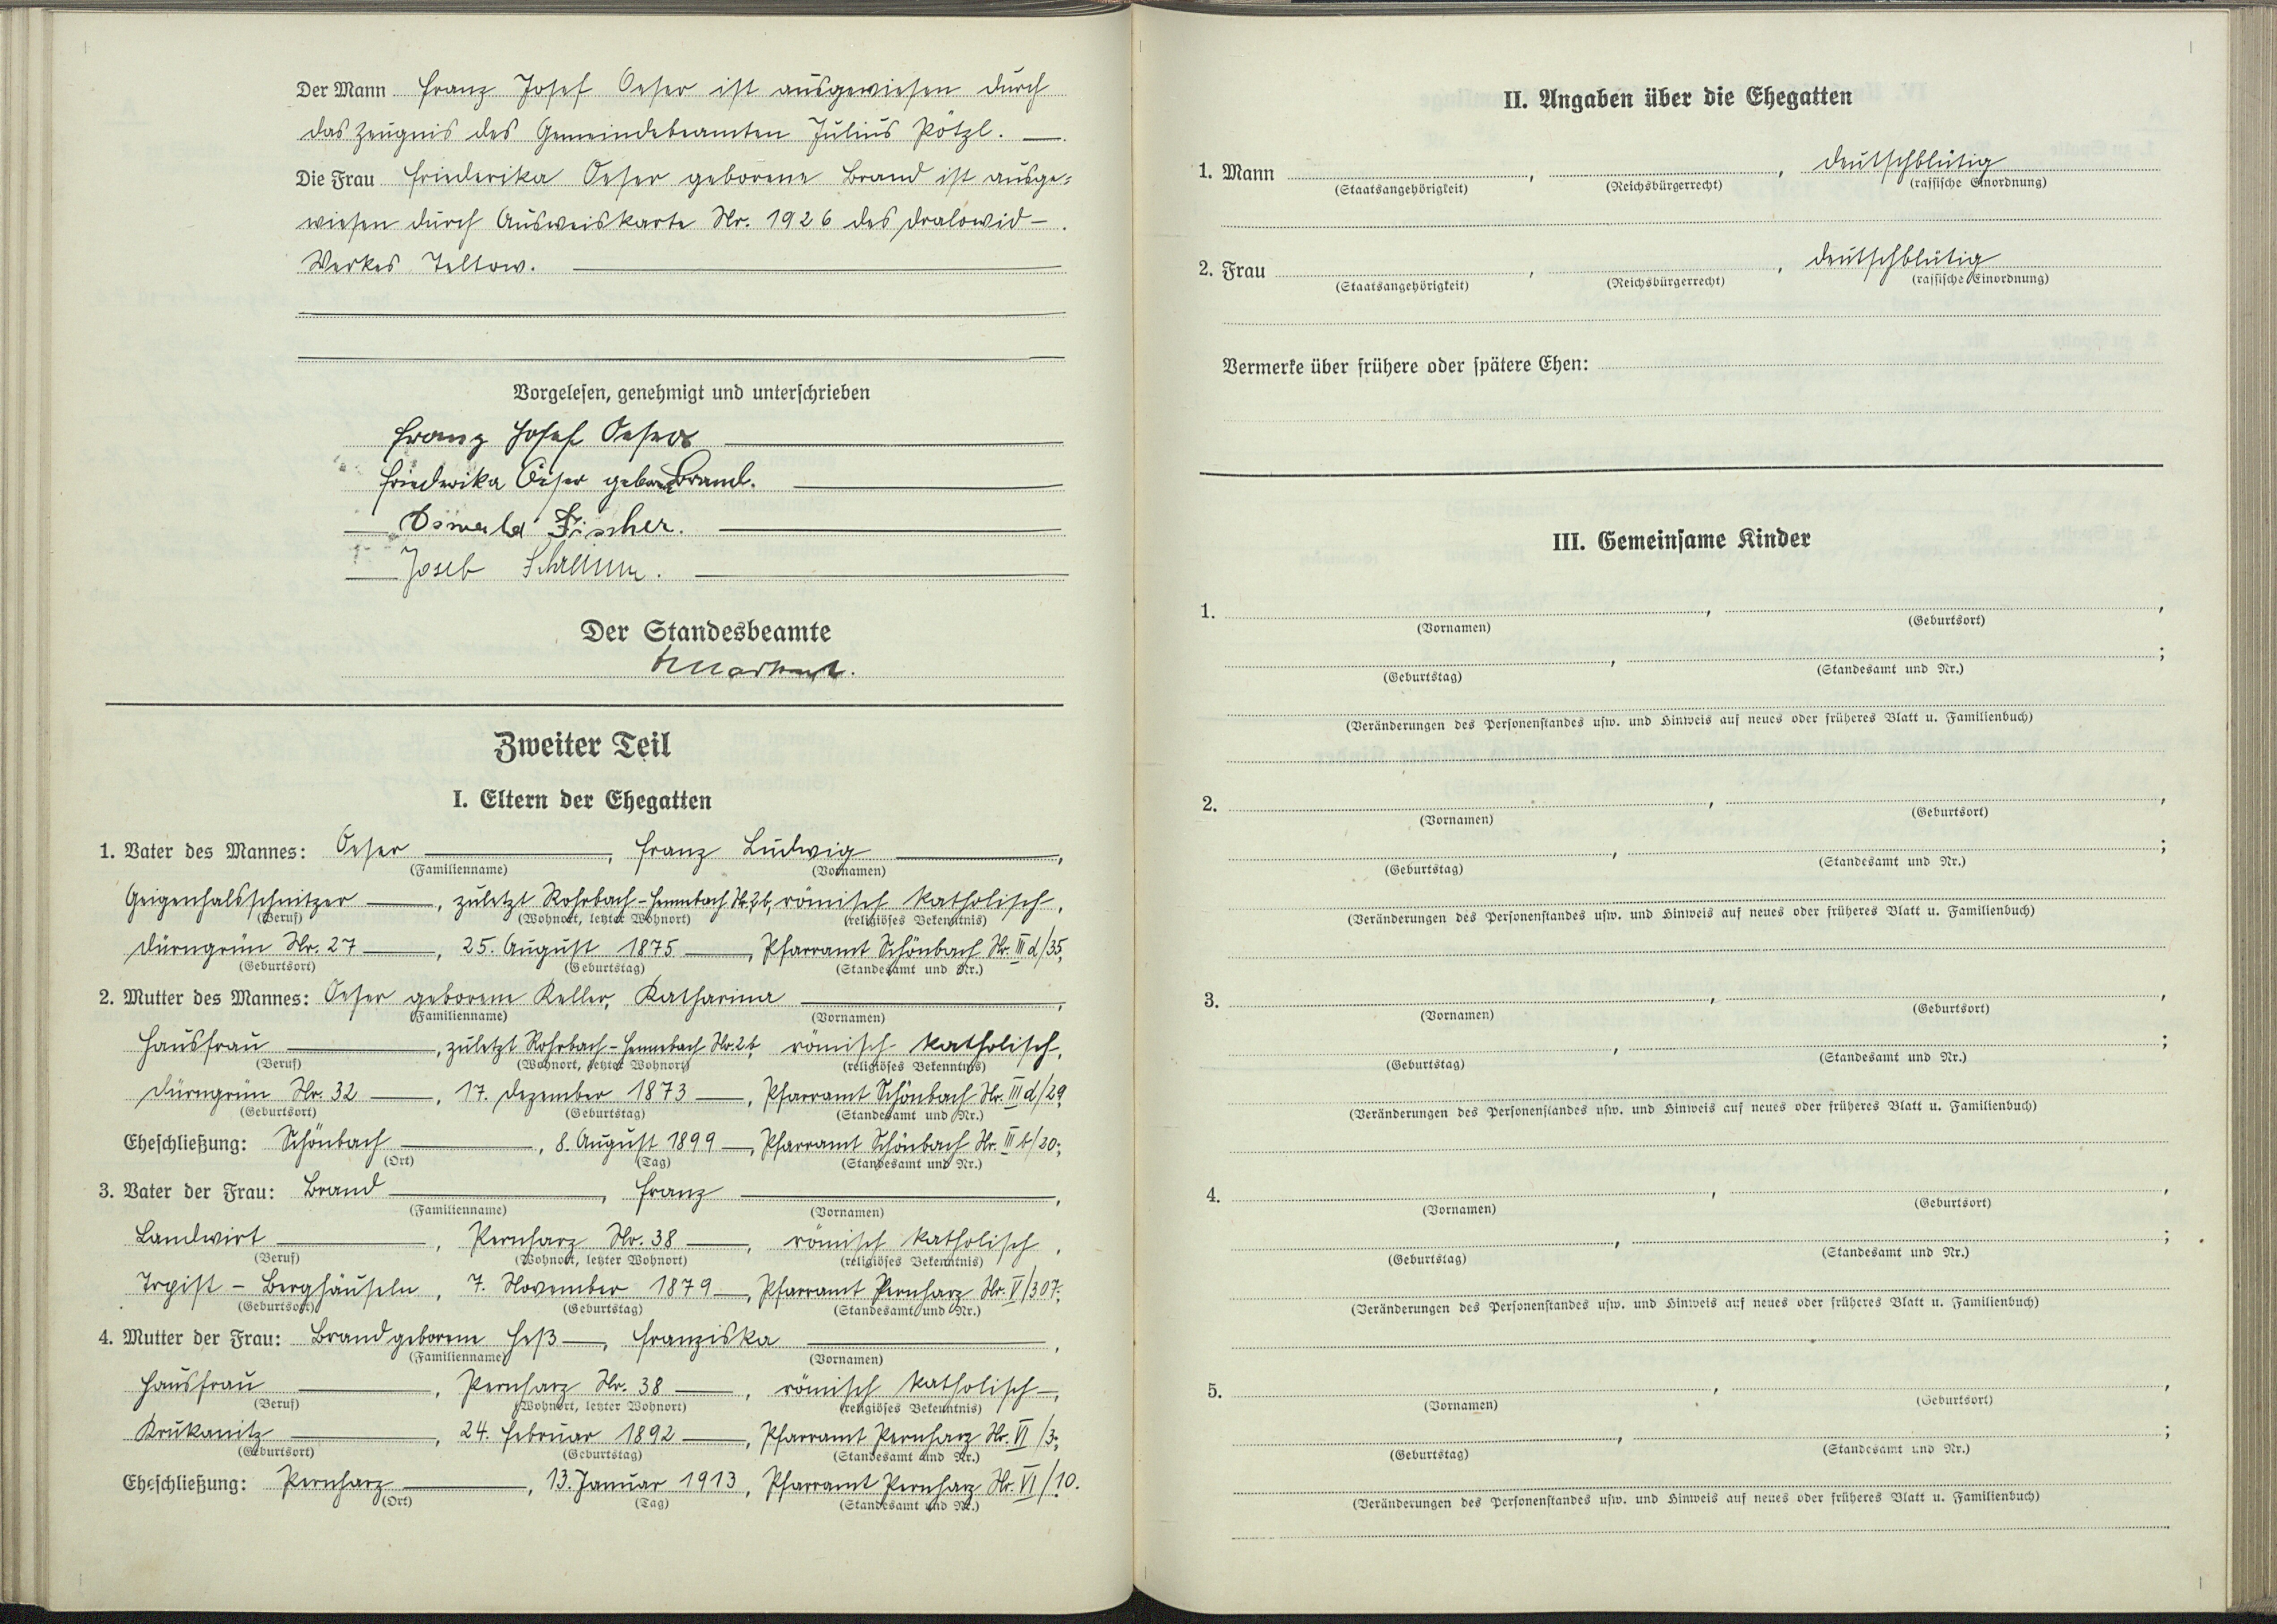 Der Mann Franz Josef Oeser ist ausgewiesen durch
das Zeugnis des Gemeindebeamten Julius Pötzl.
Die Frau Friederika Oeser geborene Brand ist ausge=
wiesen durch Ausweiskarte Nr. 1926 des Dralowid-
Werkes Teltow.
Vorgelesen, genehmigt und unterschrieben
Franz Josef Oeser
Friederika Oeser geborene Brand.
Oswald Fischer.
Josef
Der Standesbeamte
Zweiter Teil
I. Eltern der Ehegatten
1. Vater des Mannes: Oeser, Franz Ludwig,
(Familienname) (Vornamen)
Geigenhalsschnitzer, zuletzt Rohrbach-Hennebach Nr. 2b, römisch katholisch,
(Beruf) (Wohnort, letzter Wohnort) (religiöses Bekenntnis)
Dürngrün Nr. 27, 25. August 1875, Pfarramt Schönbach Nr. III d/35,
(Geburtsort) (Geburtstag) (Standesamt und Nr.)
2. Mutter des Mannes: Oeser geborene Keller, Katharina,
(Familienname) (Vornamen)
Hausfrau, zuletzt Rohrbach-Hennebach Nr. 2b, römisch katholisch,
(Beruf) (Wohnort, letzter Wohnort) (religiöses Bekenntnis)
Dürngrün Nr. 32, 17. Dezember 1873, Pfarramt Schönbach Nr. III d/29,
(Geburtsort) (Geburtstag) (Standesamt und Nr.)
Eheschließung: Schönbach, 8. August 1899, Pfarramt Schönbach Nr. III b/20;
(Ort) (Tag) (Standesamt und Nr.)
3. Vater der Frau: Brand, Franz,
(Familienname) (Vornamen)
Landwirt, Pernharz Nr. 38, römisch katholisch,
(Beruf) (Wohnort, letzter Wohnort) (religiöses Bekenntnis)
Trpist - Berghäuseln, 7. November 1879, Pfarramt Pernharz Nr. V/307;
(Geburtsort) (Geburtstag) (Standesamt und Nr.)
4. Mutter der Frau: Brand geborene Heß, Franziska,
(Familienname) (Vornamen)
Hausfrau, Pernharz Nr. 38, römisch katholisch,
(Beruf) (Wohnort, letzter Wohnort) (religiöses Bekenntnis)
Krukanitz, 24. Februar 1892, Pfarramt Pernharz Nr. VI/3;
(Geburtsort) (Geburtstag) (Standesamt und Nr.)
Eheschließung: Pernharz, 13. Januar 1913, Pfarramt Pernharz Nr. VI/10.
(Ort) (Tag) (Standesamt und Nr.)
II. Angaben über die Ehegatten
1. Mann , , deutschblütig
(Staatsangehörigkeit) (Reichsbürgerrecht) (rassische Einordnung)
2. Frau , , deutschblütig
(Staatsangehörigkeit) (Reichsbürgerrecht) (rassische Einordnung)
Vermerke über frühere oder spätere Ehen:
III. Gemeinsame Kinder
1. , ,
(Vornamen) (Geburtsort)
, ;
(Geburtstag) (Standesamt und Nr.)
(Veränderungen des Personenstandes usw. und Hinweis auf neues oder früheres Blatt u. Familienbuch)
2. , ,
(Vornamen) (Geburtsort)
, ;
(Geburtstag) (Standesamt und Nr.)
(Veränderungen des Personenstandes usw. und Hinweis auf neues oder früheres Blatt u. Familienbuch)
3. , ,
(Vornamen) (Geburtsort)
, ;
(Geburtstag) (Standesamt und Nr.)
(Veränderungen des Personenstandes usw. und Hinweis auf neues oder früheres Blatt u. Familienbuch)
4. , ,
(Vornamen) (Geburtsort)
, ;
(Geburtstag) (Standesamt und Nr.)
(Veränderungen des Personenstandes usw. und Hinweis auf neues oder früheres Blatt u. Familienbuch)
5. , ,
(Vornamen) (Geburtsort)
, ;
(Geburtstag) (Standesamt und Nr.)
(Veränderungen des Personenstandes usw. und Hinweis auf neues oder früheres Blatt u. Familienbuch)